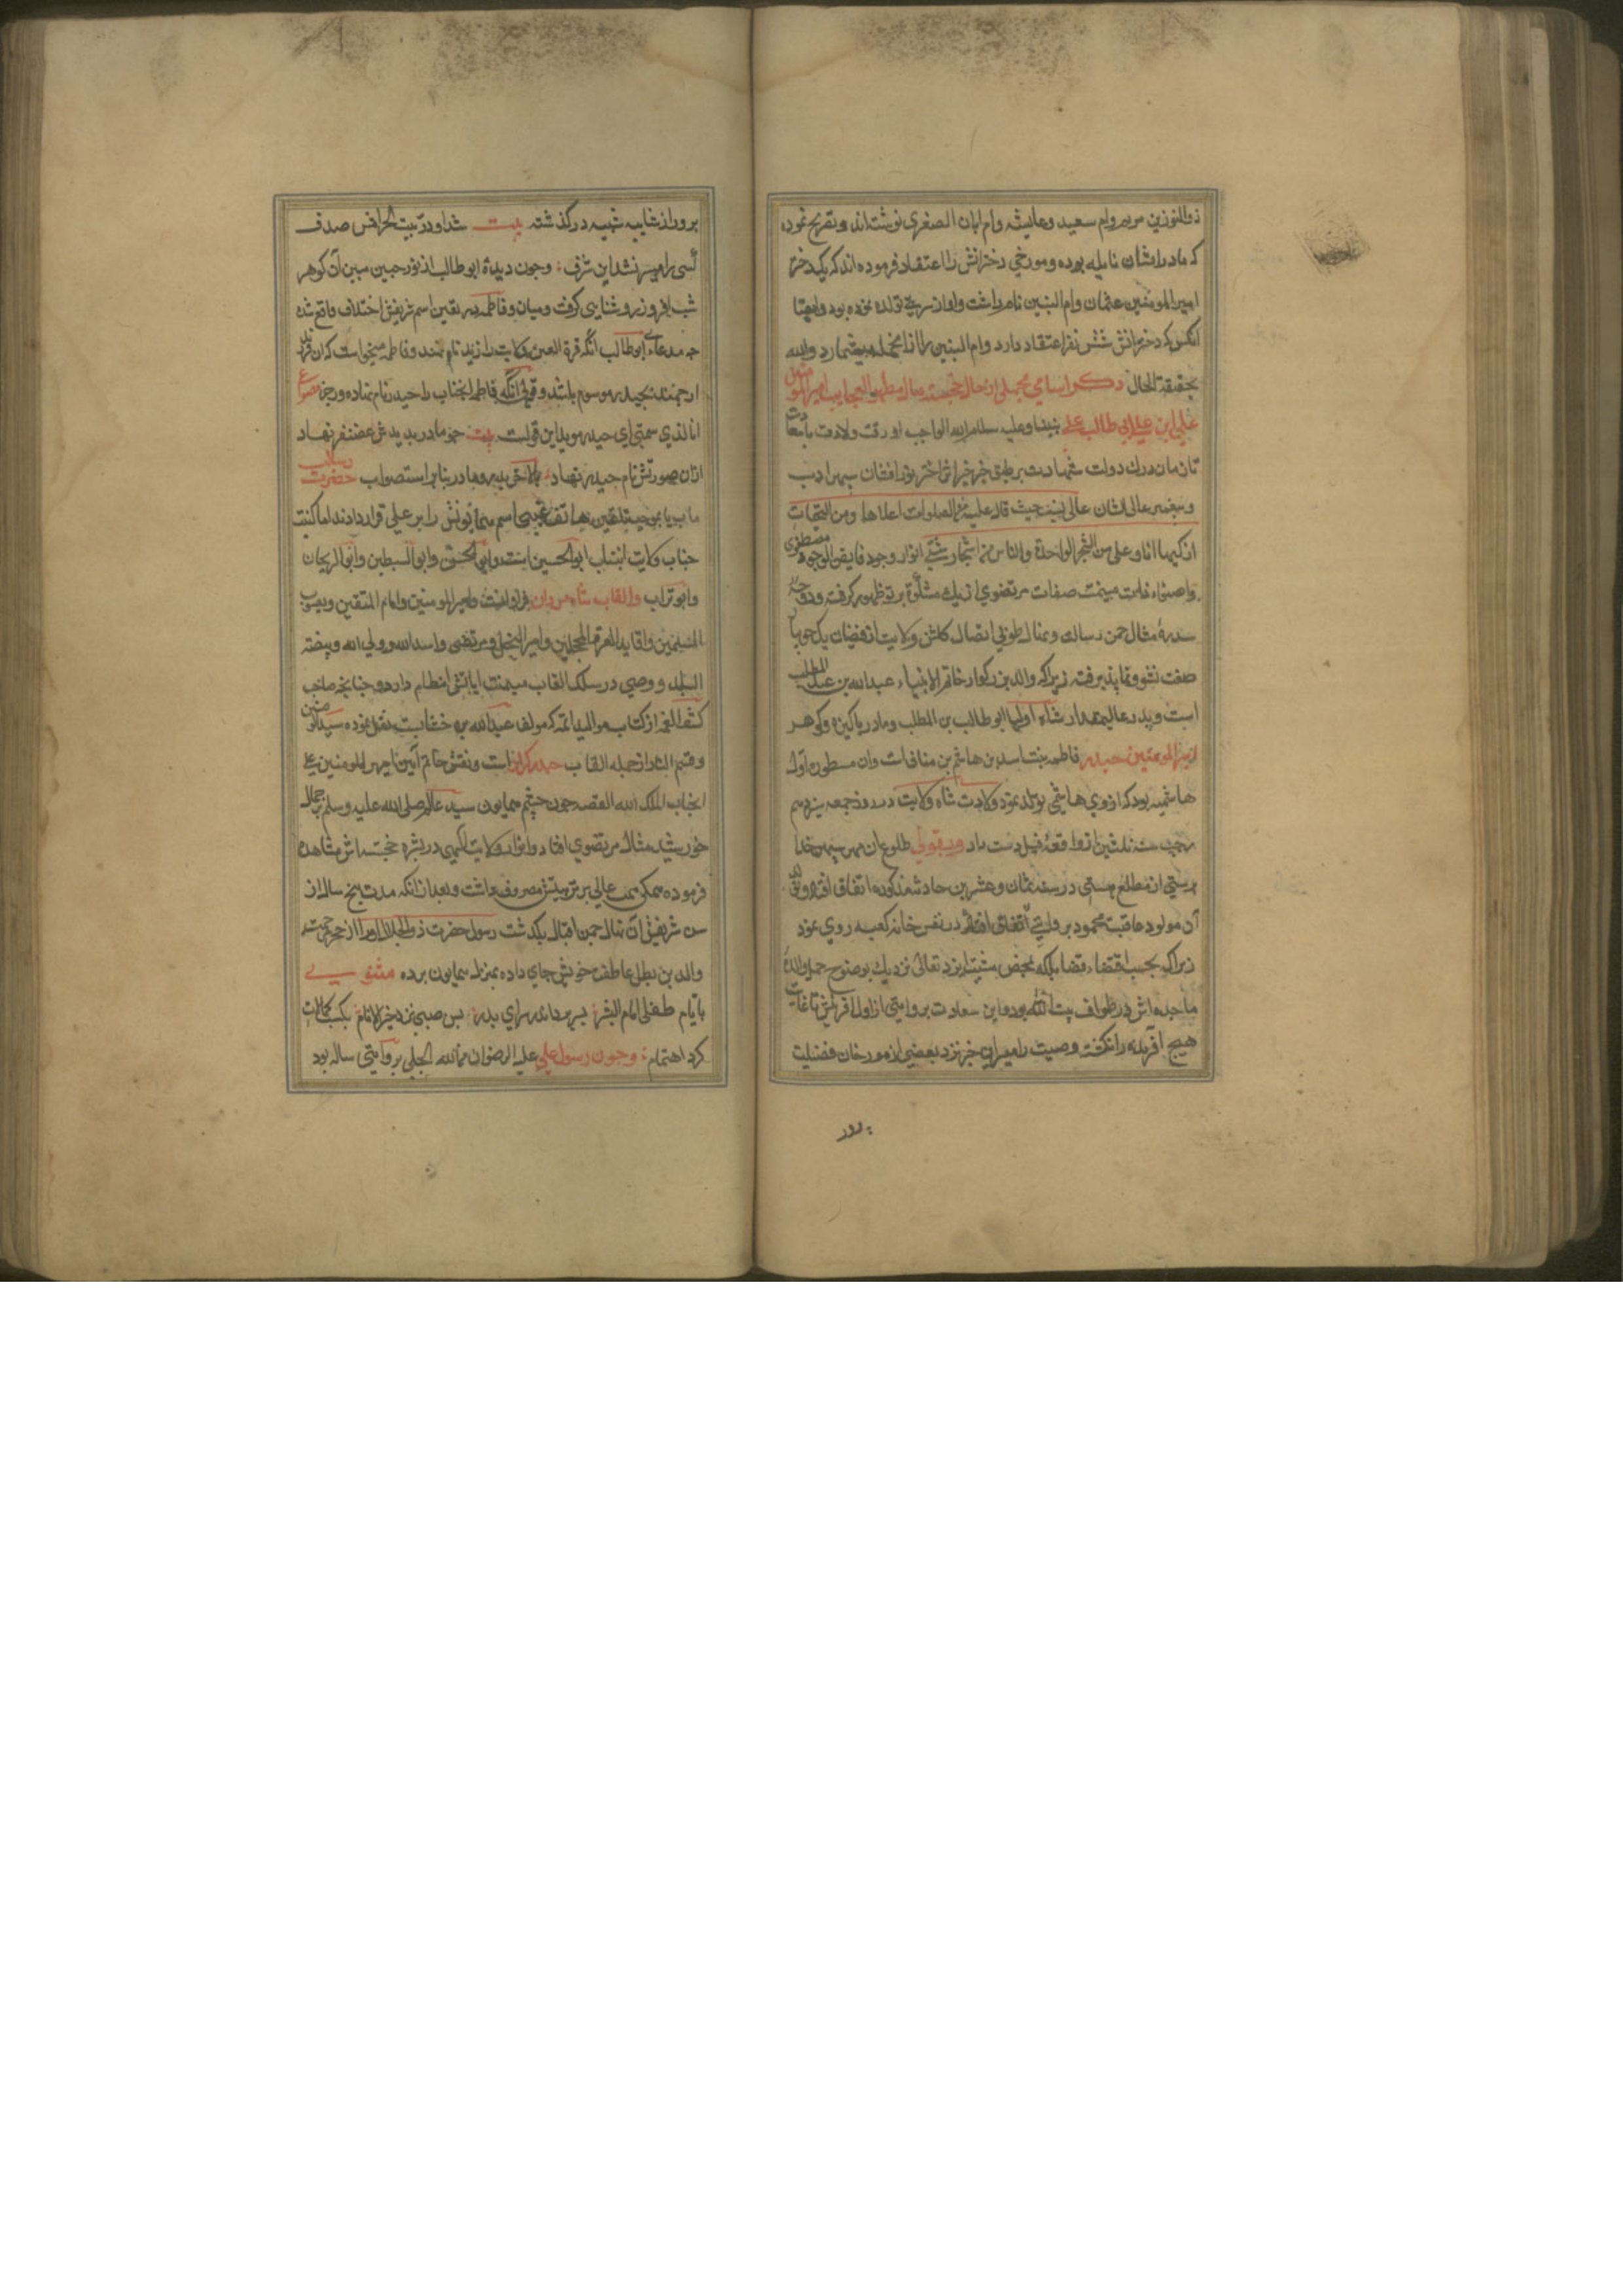 ذوالنورین مریم وام سعید وعایشه وام ابان الصغری نوشته‌اند و تصریح نموده
که مادر ایشان نایله بوده و مورخی دخترانش را اعتقاد فرموده اند که یکدختر
امیر المومنین عثمان وام البنین نام داشت واو از سریه تولد نموده بود
انکس که دخترانش شش نفر اعتقاد دارد وام البنین را از انجمله میشمارد والله
بحقیقة الحال ذکر اسامی مجملی از حال خجسته مآل مظهر العجایب امیر المومنین
علی ابن ابی طالب علی نبینا وعلیه سلام الله الواجب از وقت ولادت با سعادت
تا زمان درک دولت شهادت بر طبق خبر خیر اثر اختر نور افشان سپهر ادب
وسرور عالی شان عالی نسب حیث قال علیه من الصلوات اعلاها ومن التحیات
ازکیها انا وعلی من الشجر الواحدة والناس من اشجار شتی انوار وجود فایض الجود مصطفوی
واضواء ذات میمنت صفات مرتضوی از یک مشکوة پرتو ظهور کرفته ودوحه
سدره مثال چمن رسالت ونهال طوبی اتصال کلشن ولایت از فیضان یک جویبار
صفت نشو ونما پذیرفته زیرا که والد بزرکوار خاتم الانبیاء عبدالله بن عبدالمطلب
است وپدر عالیمقدار شاه اولیا ابو طالب بن المطلب ومادر پاکیزه کوهر
امیر المومنین حیدر فاطمه بنت اسد بن هاشم بن مناف است وان مسطوره اول
هاشمیه بود که از وی هاشمی تولد نمود ولادت شاه ولایت در روز جمعه سیزدهم
رجب سنه ثلثین از واقعهٔ فیل دست داد وبقولی طلوع ان مهر سپهر خدا
پرستی از مطلع هستی در سنه ثمان وعشرین حادثه مذکوره اتفاق افتاد
آن مولود عاقبت محمود بروایتی اتفاق افتاد در نفس خانه کعبه روی نمود
زیرا که بحسب اقتضاء قضا بلکه بمحض مشیت ایزد تعالی نزدیک بوضوح حمل والده
ماجده اش در طواف بیت الله بود واین سعادت بروایتی از اول افرینش تا غایت
هیچ افریده را نکشته وصیت رامیرانی جز نزد بعضی از مورخان فضیلت
برور از شایبه شبیه درکذشته بیت شد او در بیت الحرامش صدف
کسی را میسر نشد این شرف وجون دیدهٔ ابو طالب از نور جبین مبین آن کوهر
شب افروز روشنایی کرفت ومیان او وفاطمه در تعین اسم شریفش اختلاف واقع شد
چه مدعاء ابو طالب انکه قرة العین ولایت را زید نام نهند وفاطمه میخواست که ان فرزند
ارجمند بحیدر موسوم باشد وقولی انکه فاطمه انجناب را حیدر نام نهاده ورجز مصراع
انا الذی سمتنی امی حیدره موید این قولست بیت چو مادر بدیدش غضنفر نهاد
ازان صورتش نام حیدر نهاد بالاخره پدر ومادر بنابر استصواب حضرت رسالت
ماب یا بموجب تلقین هاتف غیبی اسم همایونش را بر علی قرار دادند اما کنیت
جناب ولایت انتساب ابو الحسین است وابو الحسن وابو السبطین وابو الریحان
وابو تراب والقاب شاه مردان فراوانست وامیر المومنین وامام المتقین ویعسوب
المسلمین وقاید الغر المحجلین وامیر النحل ومرتضی واسد الله وولی الله وبیضة
البلد ووصی در سلک القاب میمنت ایاتش انتظام دارد وچنانچه صاحب
کشف الغمه از کتاب موالید ائمه که مولف عبد الله بن خشابست نقل نموده سید المومنین
وقسیم النار از جمله القاب حیدر کرار است ونقش خاتم آیین امیر المومنین علی
انجناب الملک الله القصه جون چشم همایون سید عالم صلی الله علیه وسلم بر جمال
خورشید مثال مرتضوی افتاد وانوار ولایت الهی در بشره خجسته اش مشاهده
فرموده همکی همت عالی بر تربیتش مصروف داشت وبعد از انکه مدت پنج سال از
سن شریفش آن نهال چمن اقبال بکذشت رسول حضرت ذوالجلال او را از حجر تربیت
والدین بظل عاطفت خویش جای داده بمنزل همایون برده مثنوی
بایام طفلی امام البشر ببرید از سرای پدر پس صبی نزد خیر الانام بکسب کمالات
کرد اهتمام وچون رسول علی علیه الرضوان من الله الجلی بروایتی ساله بود
برور